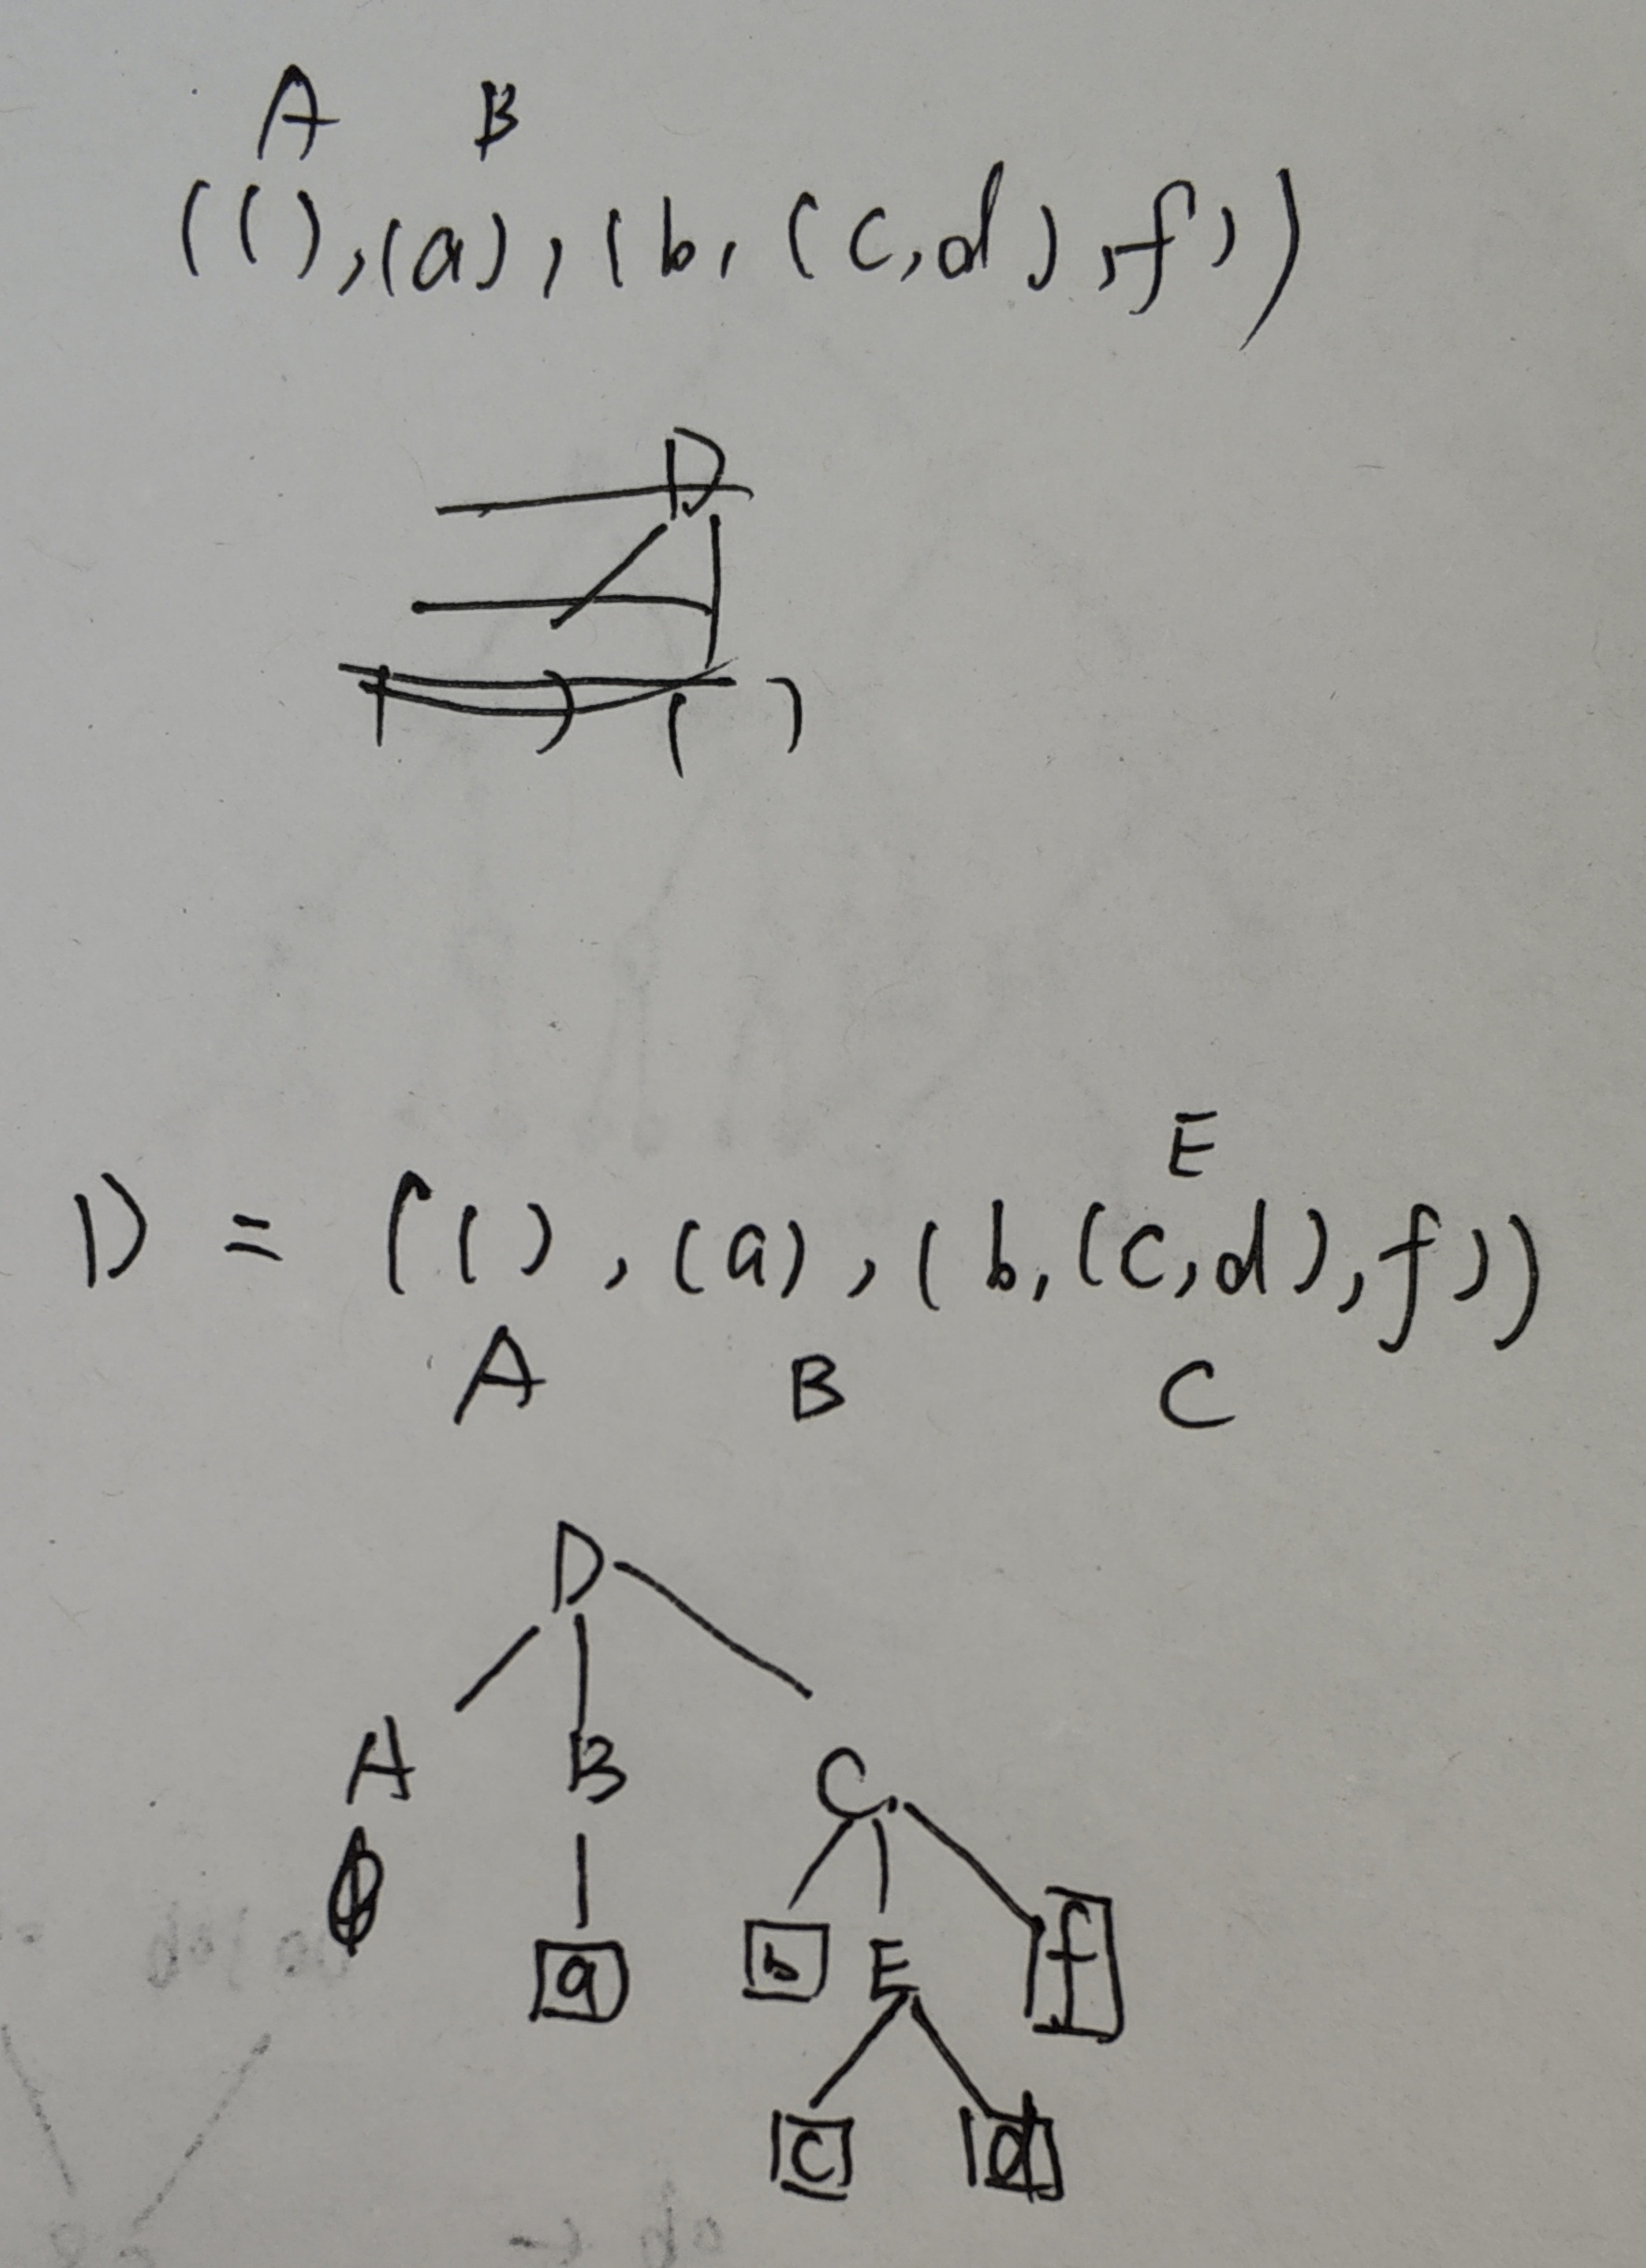 A B
((),(a),(b,(c,d),f))
D
( ) ( )
E
D = ((),(a),(b,(c,d),f))
A B C
D
A B C
φ a b E f
c d